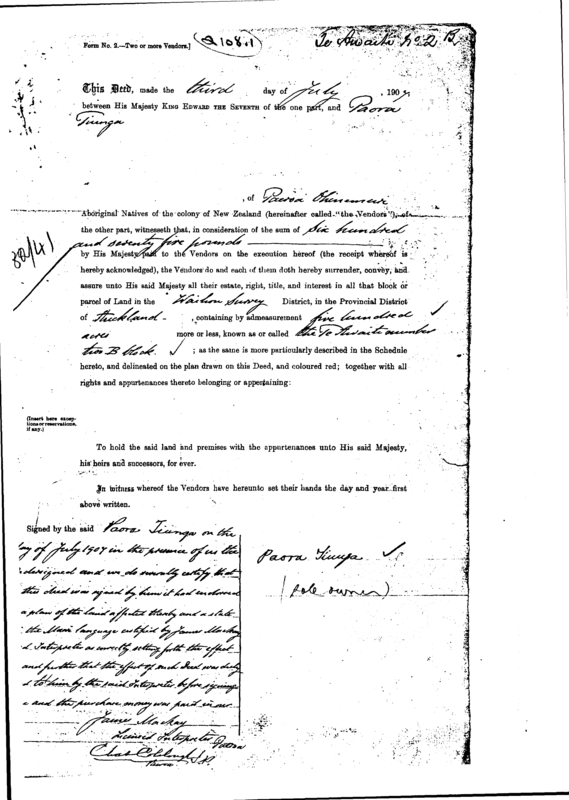 Form No. 2.—Two or more Vendors.]
To Awaiti No 2 B
This Deed, made the third day of July, 1907,
between His Majesty KING EDWARD THE SEVENTH of the one part, and Paora
Tiunga
, of Paeroa Ohinemuri
Aboriginal Natives of the colony of New Zealand (hereinafter called "the Vendors"), of
the other part, witnesseth that, in consideration of the sum of Six hundred
and seventy five pounds
by His Majesty paid to the Vendors on the execution hereof (the receipt whereof is
hereby acknowledged), the Vendors do and each of them doth hereby surrender, convey, and
assure unto His said Majesty all their estate, right, title, and interest in all that block or
parcel of Land in the Waihou Survey District, in the Provincial District
of Auckland, containing by admeasurement five hundred
acres more or less, known as or called the Te Awaiti number
two B block.; as the same is more particularly described in the Schedule
hereto, and delineated on the plan drawn on this Deed, and coloured red; together with all
rights and appurtenances thereto belonging or appertaining:
(Insert here excep-
tions or reservations,
if any.)
To hold the said land and premises with the appurtenances unto His said Majesty,
his heirs and successors, for ever.
In witness whereof the Vendors have hereunto set their hands the day and year first
above written.
Signed by the said Paora Tiunga on the
day of July 1907 in the presence of us the
and we do severally certify that
this deed was signed by him it had endorsed
a plan of the land affected thereby and a state
the Maori language certified by James Mackay
d Interpreter as correctly setting forth the effect
and further that the effect of such Deed was duly
d to him by the said Interpreter before signing
e and the purchase money was paid in our
James Mackay
Licensed Interpreter Paeroa
J.P.
Paeroa
Paora Tiunga
(sole owner)